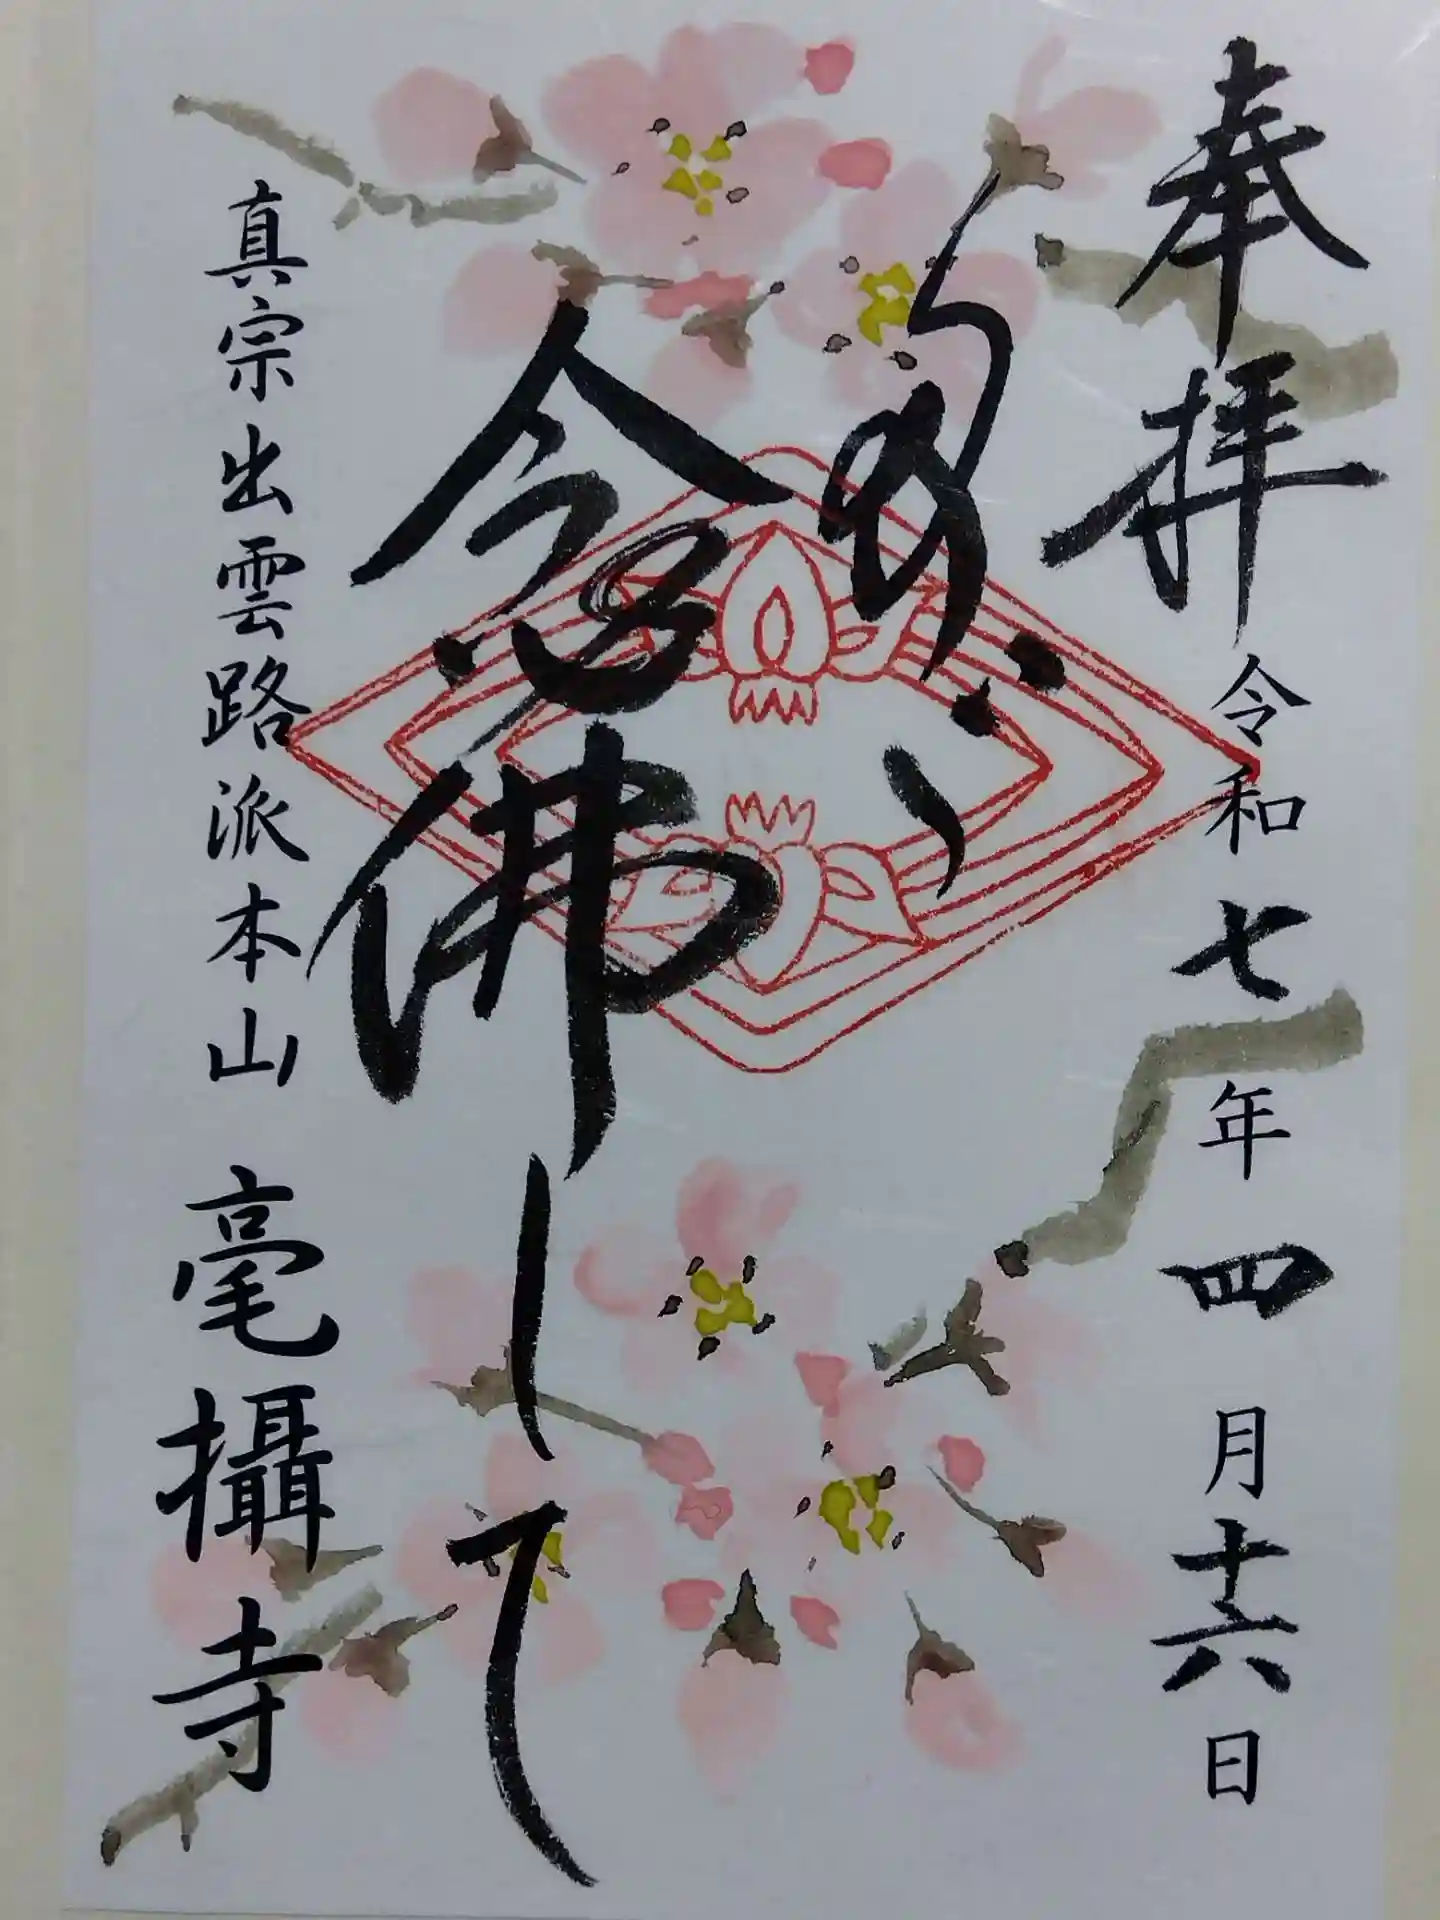 奉拝 令和七年四月十六日
念佛して
真宗出雲路派本山 毫攝寺